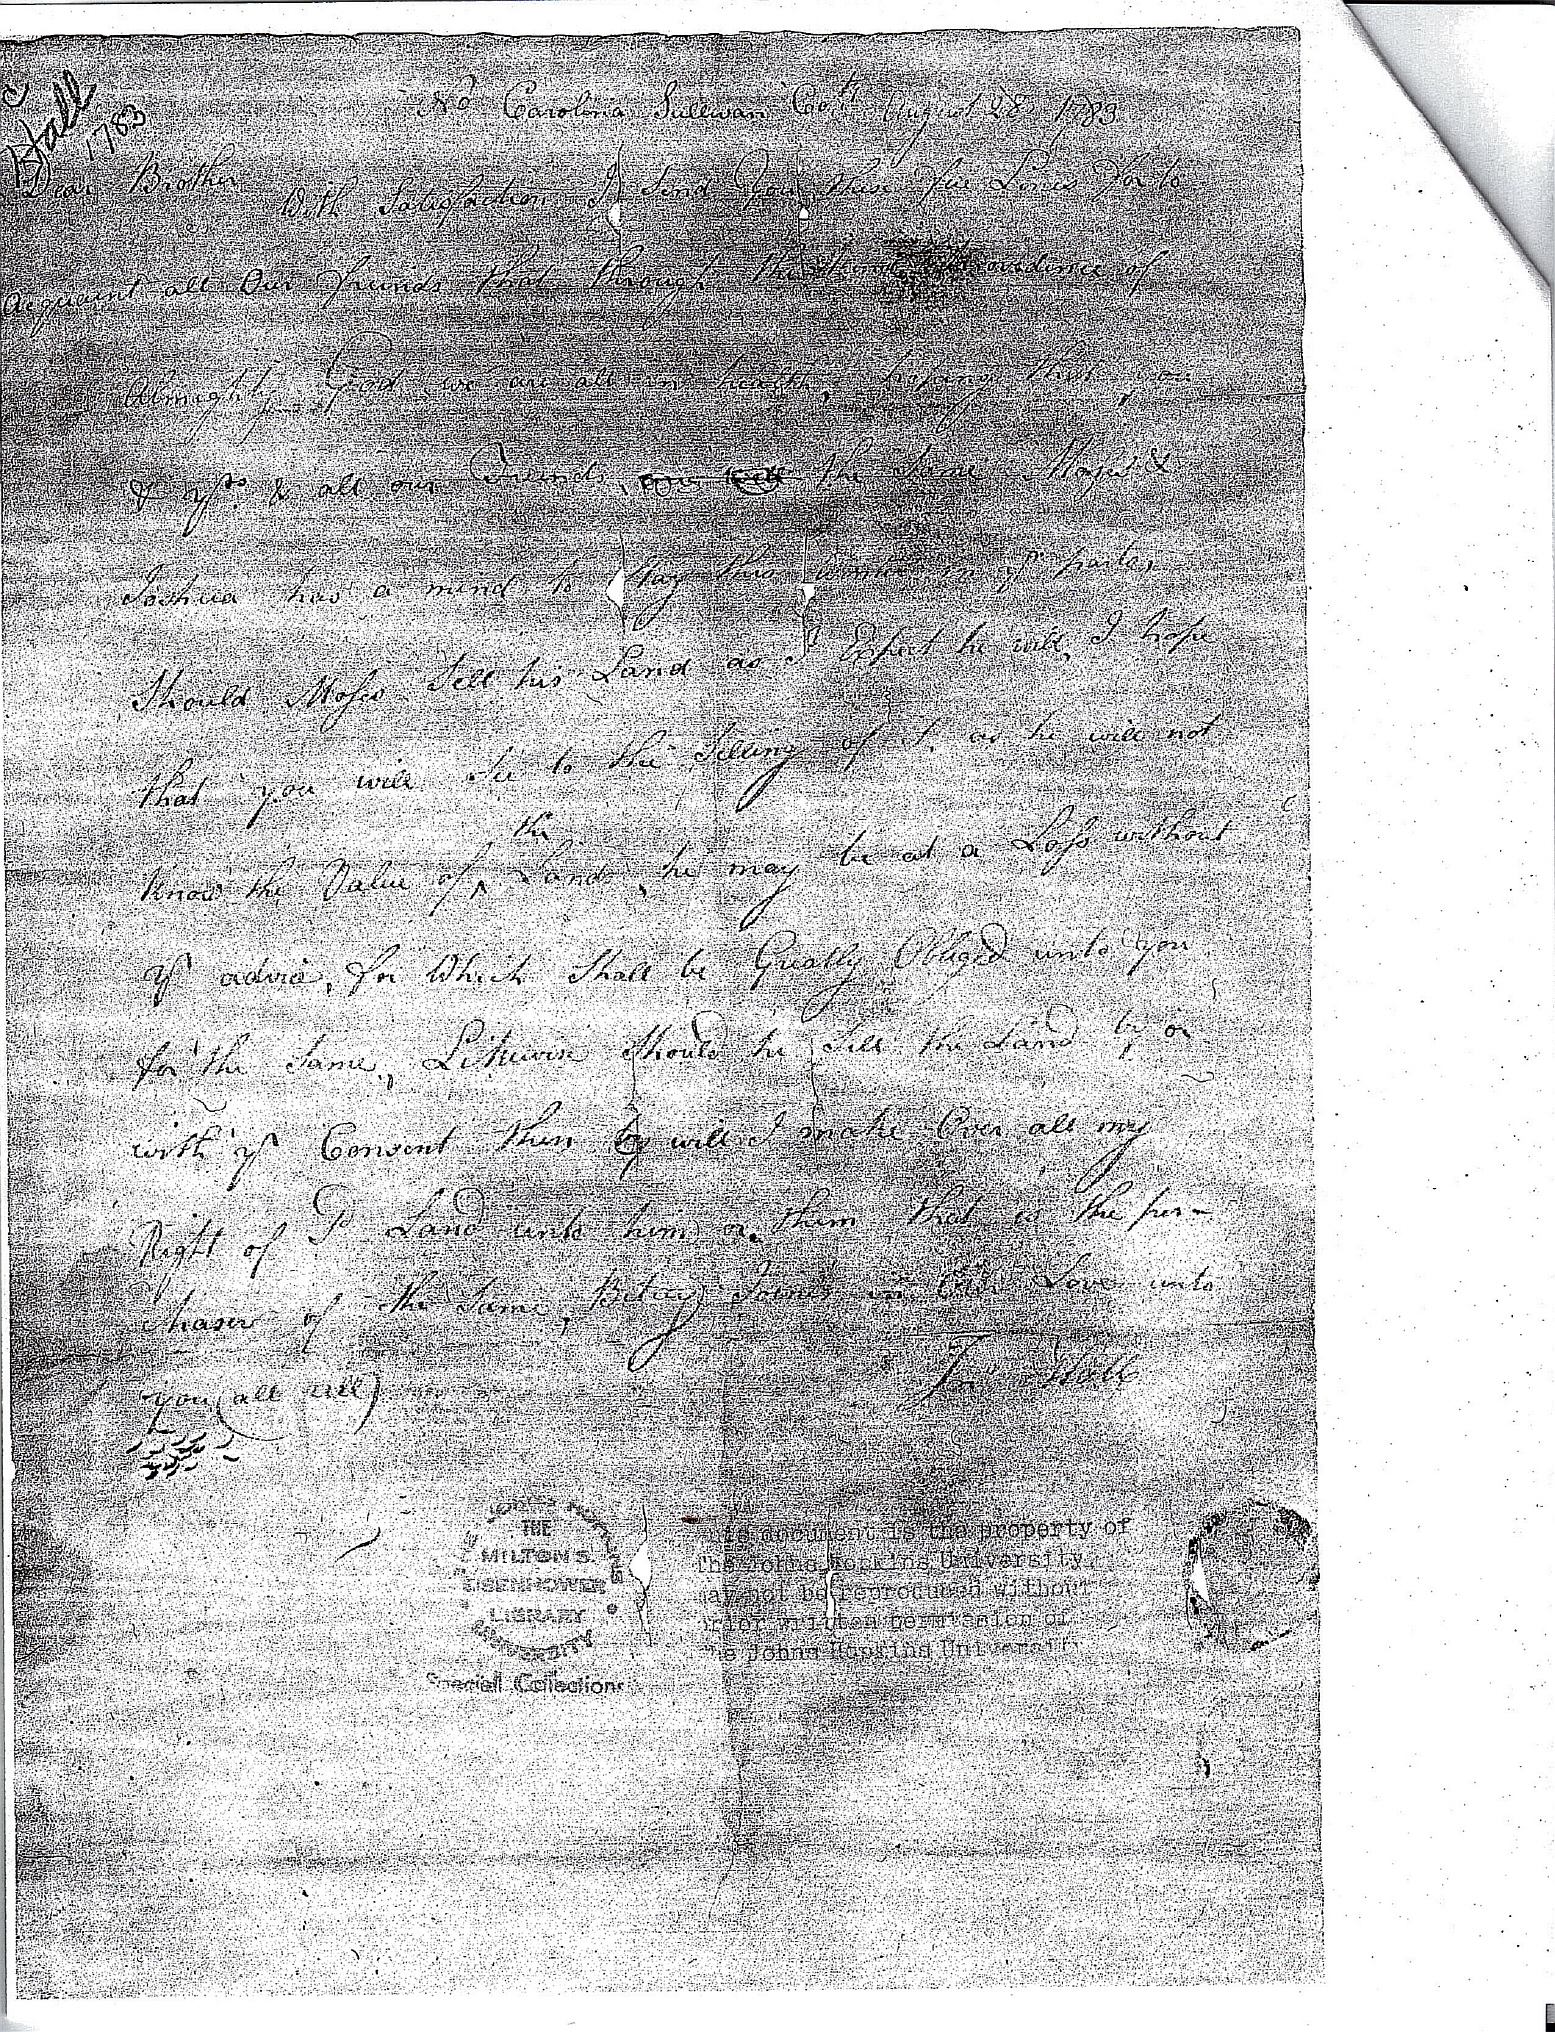 Hall
1783
No Carolina Sullivan Coty August 28 1783
Dear Brother
With Satisfaction I Send you these few Lines for to
Acquaint all Our friends that through the Providence of
Almighty God we are all in health, hoping that
& yrs & all our Friends the Same Moses &
Joshua has a mind to Stay this winter in yr parts,
Should Moses Sell his Land as I Expect he will, I hope
that you will See to the Selling of it as he will not
know the Value of the Land, he may be at a Loss without
yr advice, for Which Shall be Greatly Obliged unto you
for the Same, Likewise Should he Sell the Land by or
with yr Consent then will I make Over all my
Right of Sd Land unto him or them that is the pur-
chaser of the Same, Betsey Joines in Our Love unto
you (all well)
Jno Hall
THE JOHNS HOPKINS UNIVERSITY
THE
MILTON S.
EISENHOWER
LIBRARY
Special Collections
This document is the property of
The Johns Hopkins University
may not be reproduced without
prior written permission of
The Johns Hopkins University